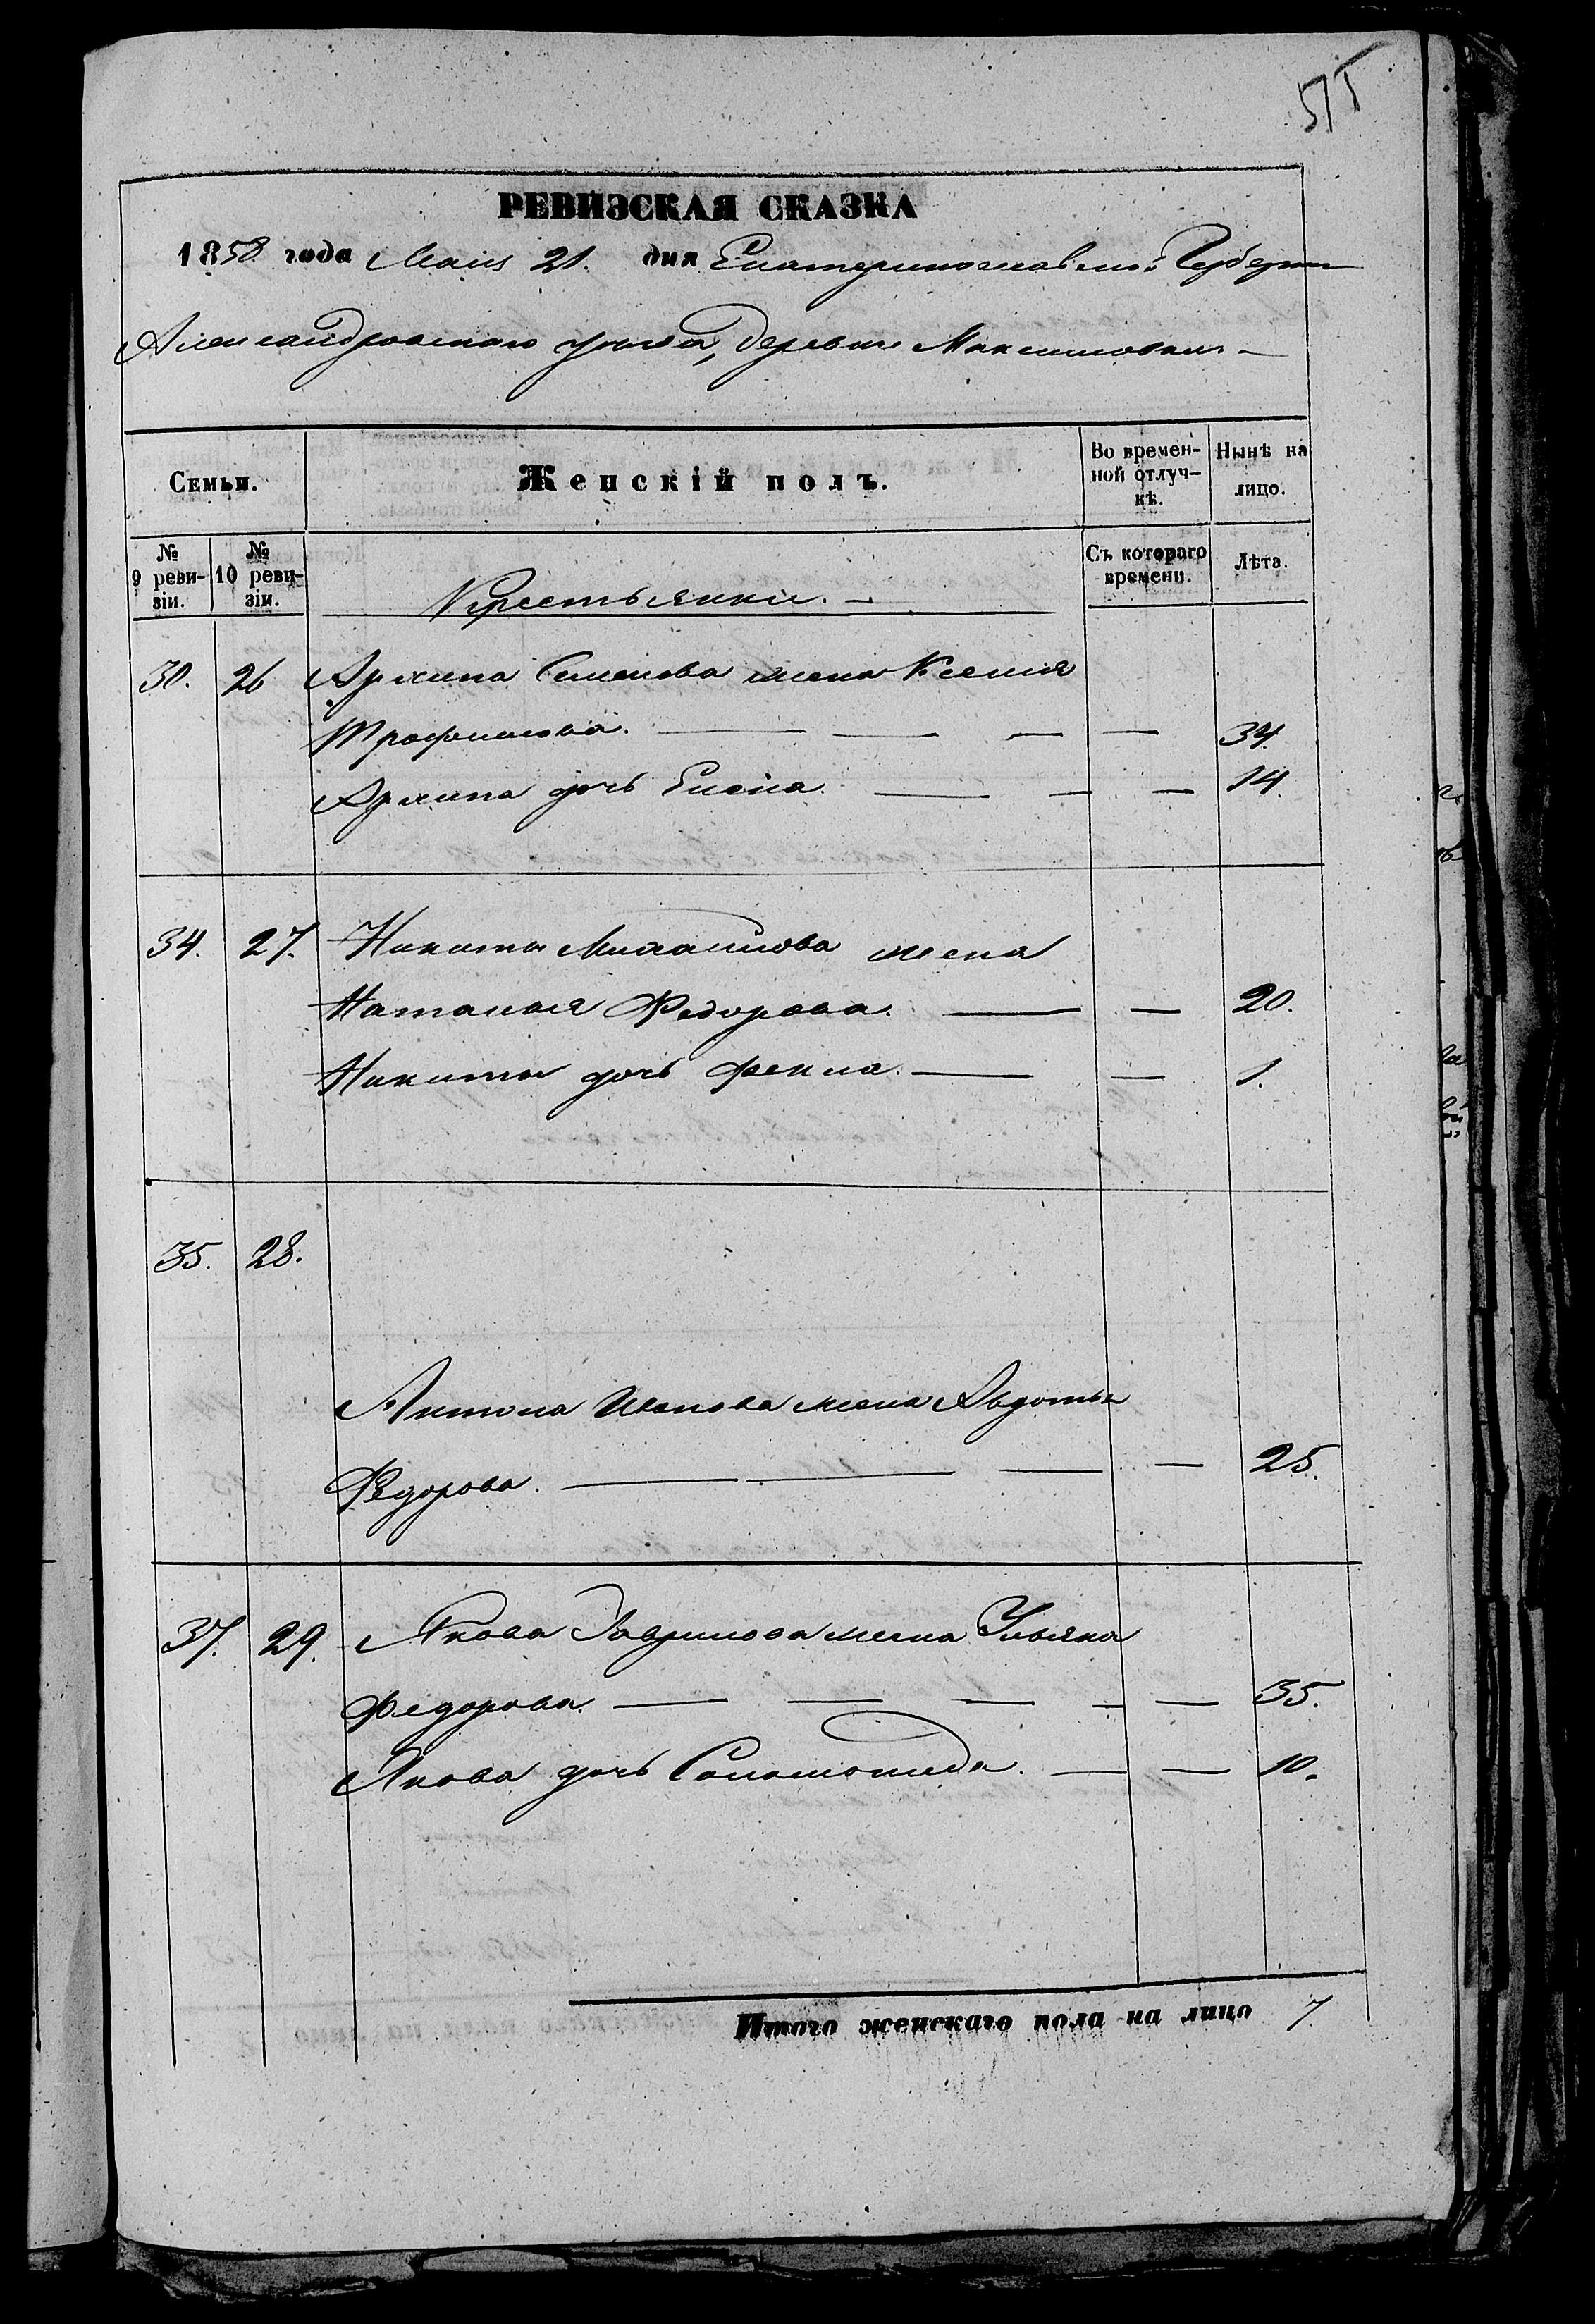 515
РЕВИЗСКАЯ СКАЗКА
1858 года Маія 21. дня Екатеринославской Губерніи
Александровскаго уѣзда, деревни Максимовки. —
Семьи.
Женскій полъ.
Во временной отлучкѣ.
Нынѣ на лицо.
№ 9 ревизіи.
№ 10 ревизіи.
Крестьянки. —
Съ котораго времени.
Лѣта.
30. 26 Архипа Семенова жена Ксенія
Трофимова. — — — — 34.
Архипа дочь Елена. — — — 14.
34. 27. Никиты Михайлова жена
Наталья Федорова. — — 20.
Никиты дочь Фекла. — — 1.
35. 28.
Антона Иванова жена Авдотья
Федорова. — — — — 25.
37. 29. Якова Гаврилова жена Ульяна
Федорова. — — — — — 35.
Якова дочь Соломонида. — — 10.
Итого женскаго пола на лицо 7